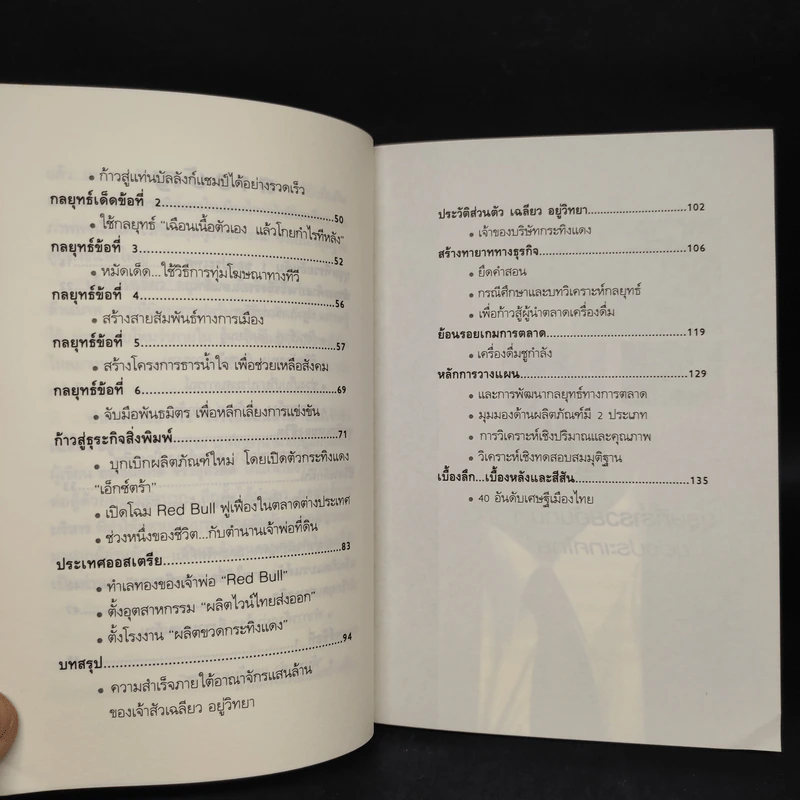 • ก้าวสู่แท่นบัลลังก์แชมป์ได้อย่างรวดเร็ว
กลยุทธ์เด็ดข้อที่ 2..........50
• ใช้กลยุทธ์ “เฉือนเนื้อตัวเอง แล้วโกยกำไรทีหลัง”
กลยุทธ์ข้อที่ 3..........52
• หมัดเด็ด...ใช้วิธีการทุ่มโฆษณาทางทีวี
กลยุทธ์ข้อที่ 4..........56
• สร้างสายสัมพันธ์ทางการเมือง
กลยุทธ์ข้อที่ 5..........57
• สร้างโครงการธารน้ำใจ เพื่อช่วยเหลือสังคม
กลยุทธ์ข้อที่ 6..........69
• จับมือพันธมิตร เพื่อหลีกเลี่ยงการแข่งขัน
ก้าวสู่ธุระกิจสิ่งพิมพ์..........71
• บุกเบิกผลิตภัณฑ์ใหม่ โดยเปิดตัวกระทิงแดง
“เอ็กซ์ตร้า”
• เปิดโฉม Red Bull ฟูเฟื่องในตลาดต่างประเทศ
• ช่วงหนึ่งของชีวิต...กับตำนานเจ้าพ่อที่ดิน
ประเทศออสเตรีย..........83
• ทำเลทองของเจ้าพ่อ “Red Bull”
• ตั้งอุตสาหกรรม “ผลิตไวน์ไทยส่งออก”
• ตั้งโรงงาน “ผลิตขวดกระทิงแดง”
บทสรุป..........94
• ความสำเร็จภายใต้อาณาจักรแสนล้าน
ของเจ้าสัวเฉลียว อยู่วิทยา
ประวัติส่วนตัว เฉลียว อยู่วิทยา..........102
• เจ้าของบริษัทกระทิงแดง
สร้างทายาททางธุรกิจ..........106
• ยึดคำสอน
• กรณีศึกษาและบทวิเคราะห์กลยุทธ์
• เพื่อก้าวสู้ผู้นำตลาดเครื่องดื่ม
ย้อนรอยเกมการตลาด..........119
• เครื่องดื่มชูกำลัง
หลักการวางแผน..........129
• และการพัฒนากลยุทธ์ทางการตลาด
• มุมมองด้านผลิตภัณฑ์มี 2 ประเภท
• การวิเคราะห์เชิงปริมาณและคุณภาพ
• วิเคราะห์เชิงทดสอบสมมุติฐาน
เบื้องลึก...เบื้องหลังและสีสัน..........135
• 40 อันดับเศษฐีเมืองไทย